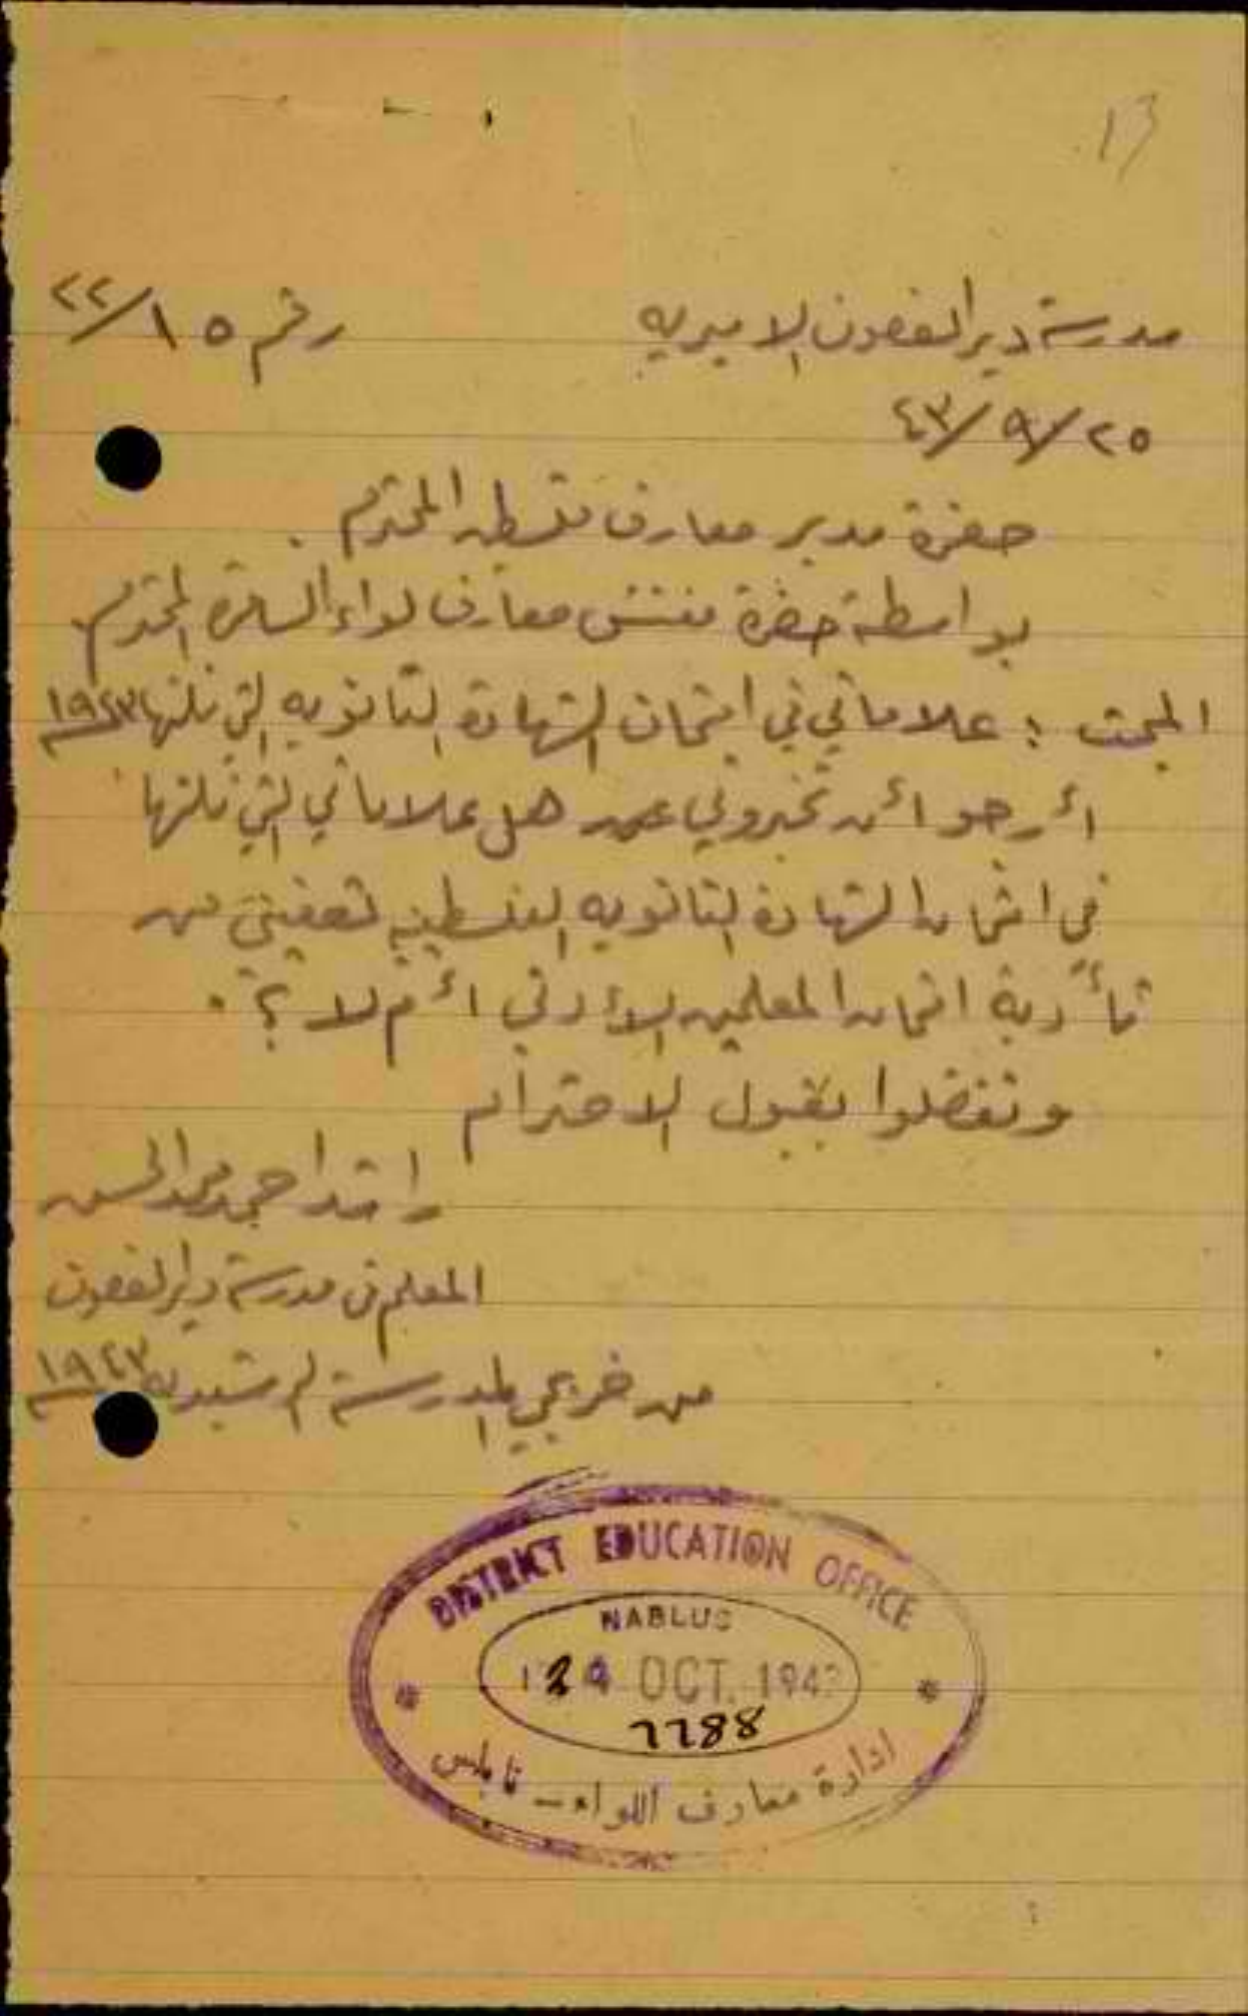 13
مدرسة دير الغصون الاميريه
رقم ٢٢/١٥
٤٣/٩/٢٥
حضرة مدير معارف فلسطين المحترم .
بواسطة حضرة مفتش معارف لواء السامره المحترم
المبحث : علاماتي في امتحان الشهادة الثانويه التي نلتها ١٩٤٣
أرجو أن تخبروني عن هل علاماتي التي نلتها
في امتحان الشهادة الثانويه الفلسطينيه تعفيني من
تأدية امتحان المعلمين الأدنى أم لا ؟ .
وتفضلوا بقبول الاحترام
راشد احمد محمد الحسن
المعلم في مدرسة دير الغصون
من خريجي المدرسة الرشيديه ١٩٤٣
DISTRICT EDUCATION OFFICE
NABLUS
OCT. 194
7788
ادارة معارف اللواء - نابلس